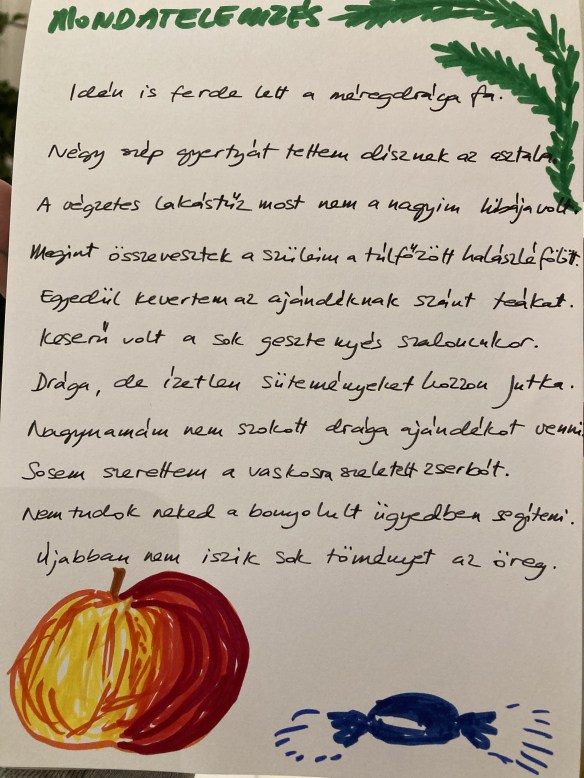 MONDATELEMZÉS
Idén is ferde lett a méregdrága fa.
Négy szép gyertyát tettem dísznek az asztalra
A végzetes lakástűz most nem a nagyim hibája volt
Megint összevesztek a szüleim a túlfőzött halászlé fölött.
Egyedül kevertem az ajándéknak szánt teákat.
Keserű volt a sok gesztenyés szaloncukor.
Drága, de ízetlen süteményeket hozzon Jutka.
Nagymamám nem szokott drága ajándékot venni
Sosem szerettem a vaskosra szeletelt zserbót.
Nem tudok neked a bonyolult ügyedben segíteni.
Újabban nem iszik sok töményet az öreg.